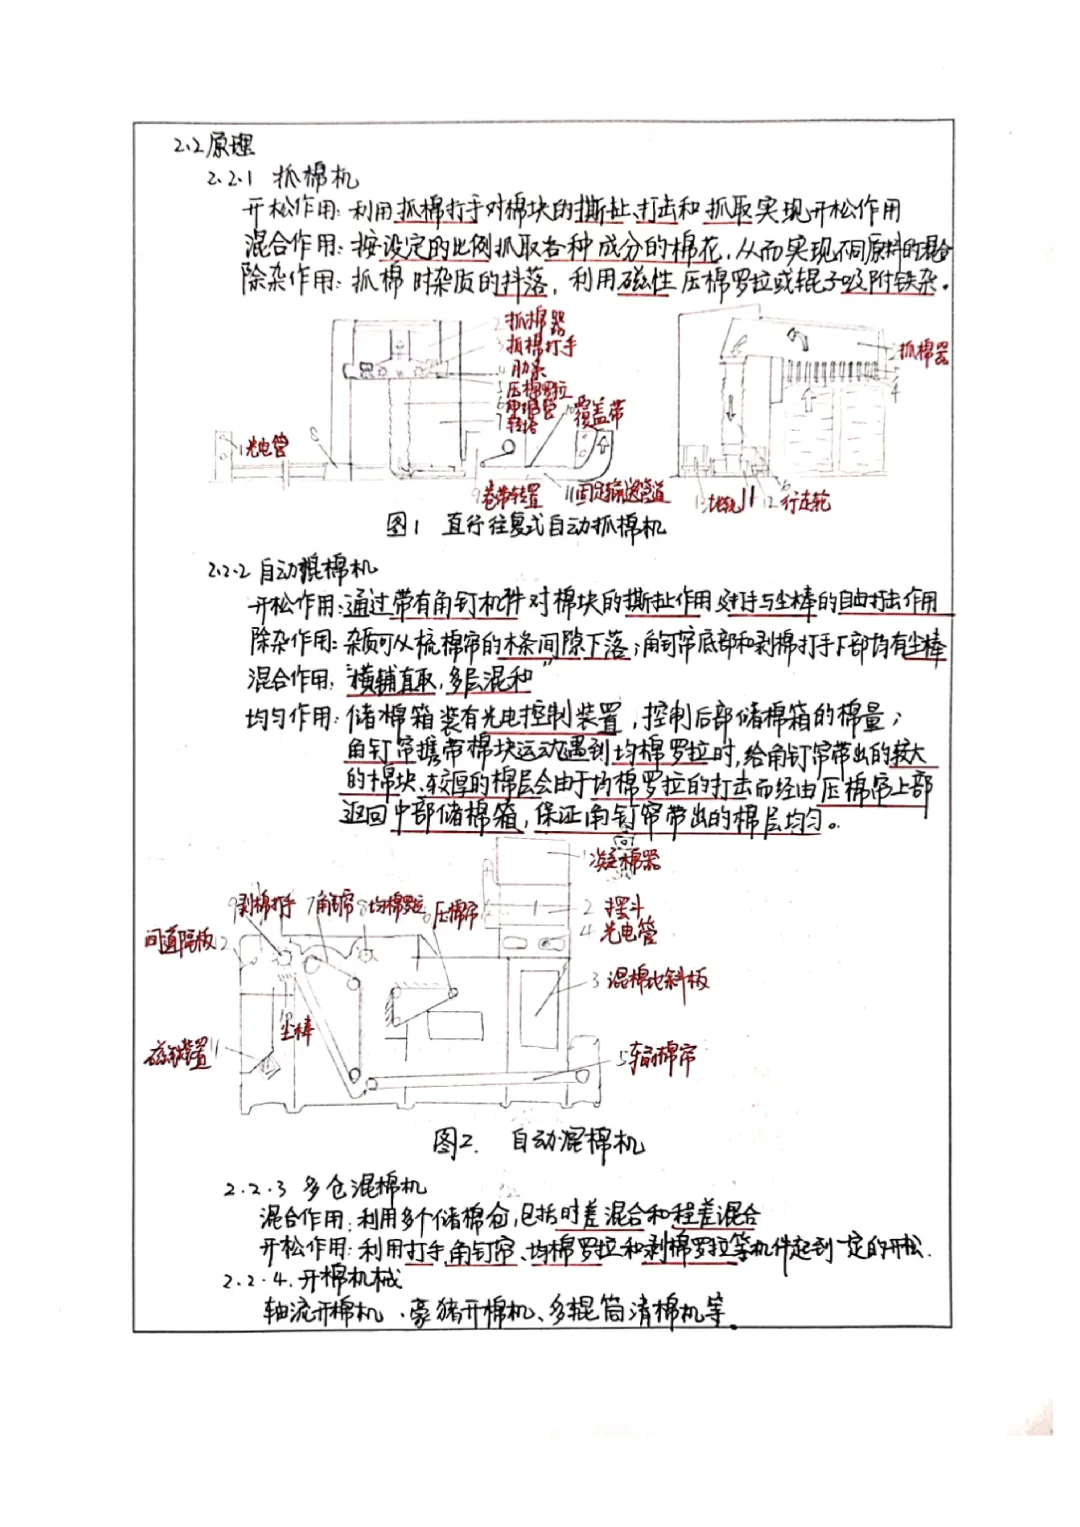 2.2原理
2.2.1 抓棉机
开松作用：利用抓棉打手对棉块的撕扯、打击和抓取实现开松作用
混合作用：按设定的比例抓取各种成分的棉花，从而实现不同原料的混合
除杂作用：抓棉时杂质的抖落，利用磁性压棉罗拉或辊子吸附铁杂。
2抓棉器
3抓棉打手
4肋条
5压棉罗拉
6伸缩管
7转塔
8
10覆盖带
1光电管
9卷带装置
11固定输送管道
2抓棉器
3
4
13地轨
12行走轮
图1 直行往复式自动抓棉机
2.2.2自动混棉机
开松作用：通过带有角钉机件对棉块的撕扯作用及打手与尘棒的自由打击作用
除杂作用：杂质可从梳棉帘的木条间隙下落；角钉帘底部和剥棉打手下部均有尘棒
混合作用："横铺直取，多层混和"
均匀作用：储棉箱装有光电控制装置，控制后部储棉箱的棉量；
角钉帘携带棉块运动遇到均棉罗拉时，给角钉帘带出的较大
的棉块、较厚的棉层会由于均棉罗拉的打击而经由压棉帘上部
返回中部储棉箱，保证角钉帘带出的棉层均匀。
1凝棉器
9剥棉打手 7角钉帘 8均棉罗拉 6压棉帘
2摆斗
4光电管
间道隔板12
3混棉比斜板
10
尘棒
磁铁装置11
5输棉帘
图2. 自动混棉机
2.2.3 多仓混棉机
混合作用：利用多个储棉仓，包括时差混合和程差混合
开松作用：利用打手、角钉帘、均棉罗拉和剥棉罗拉等机件起到一定的开松.
2.2.4.开棉机械
轴流开棉机、豪猪开棉机、多辊筒清棉机等。